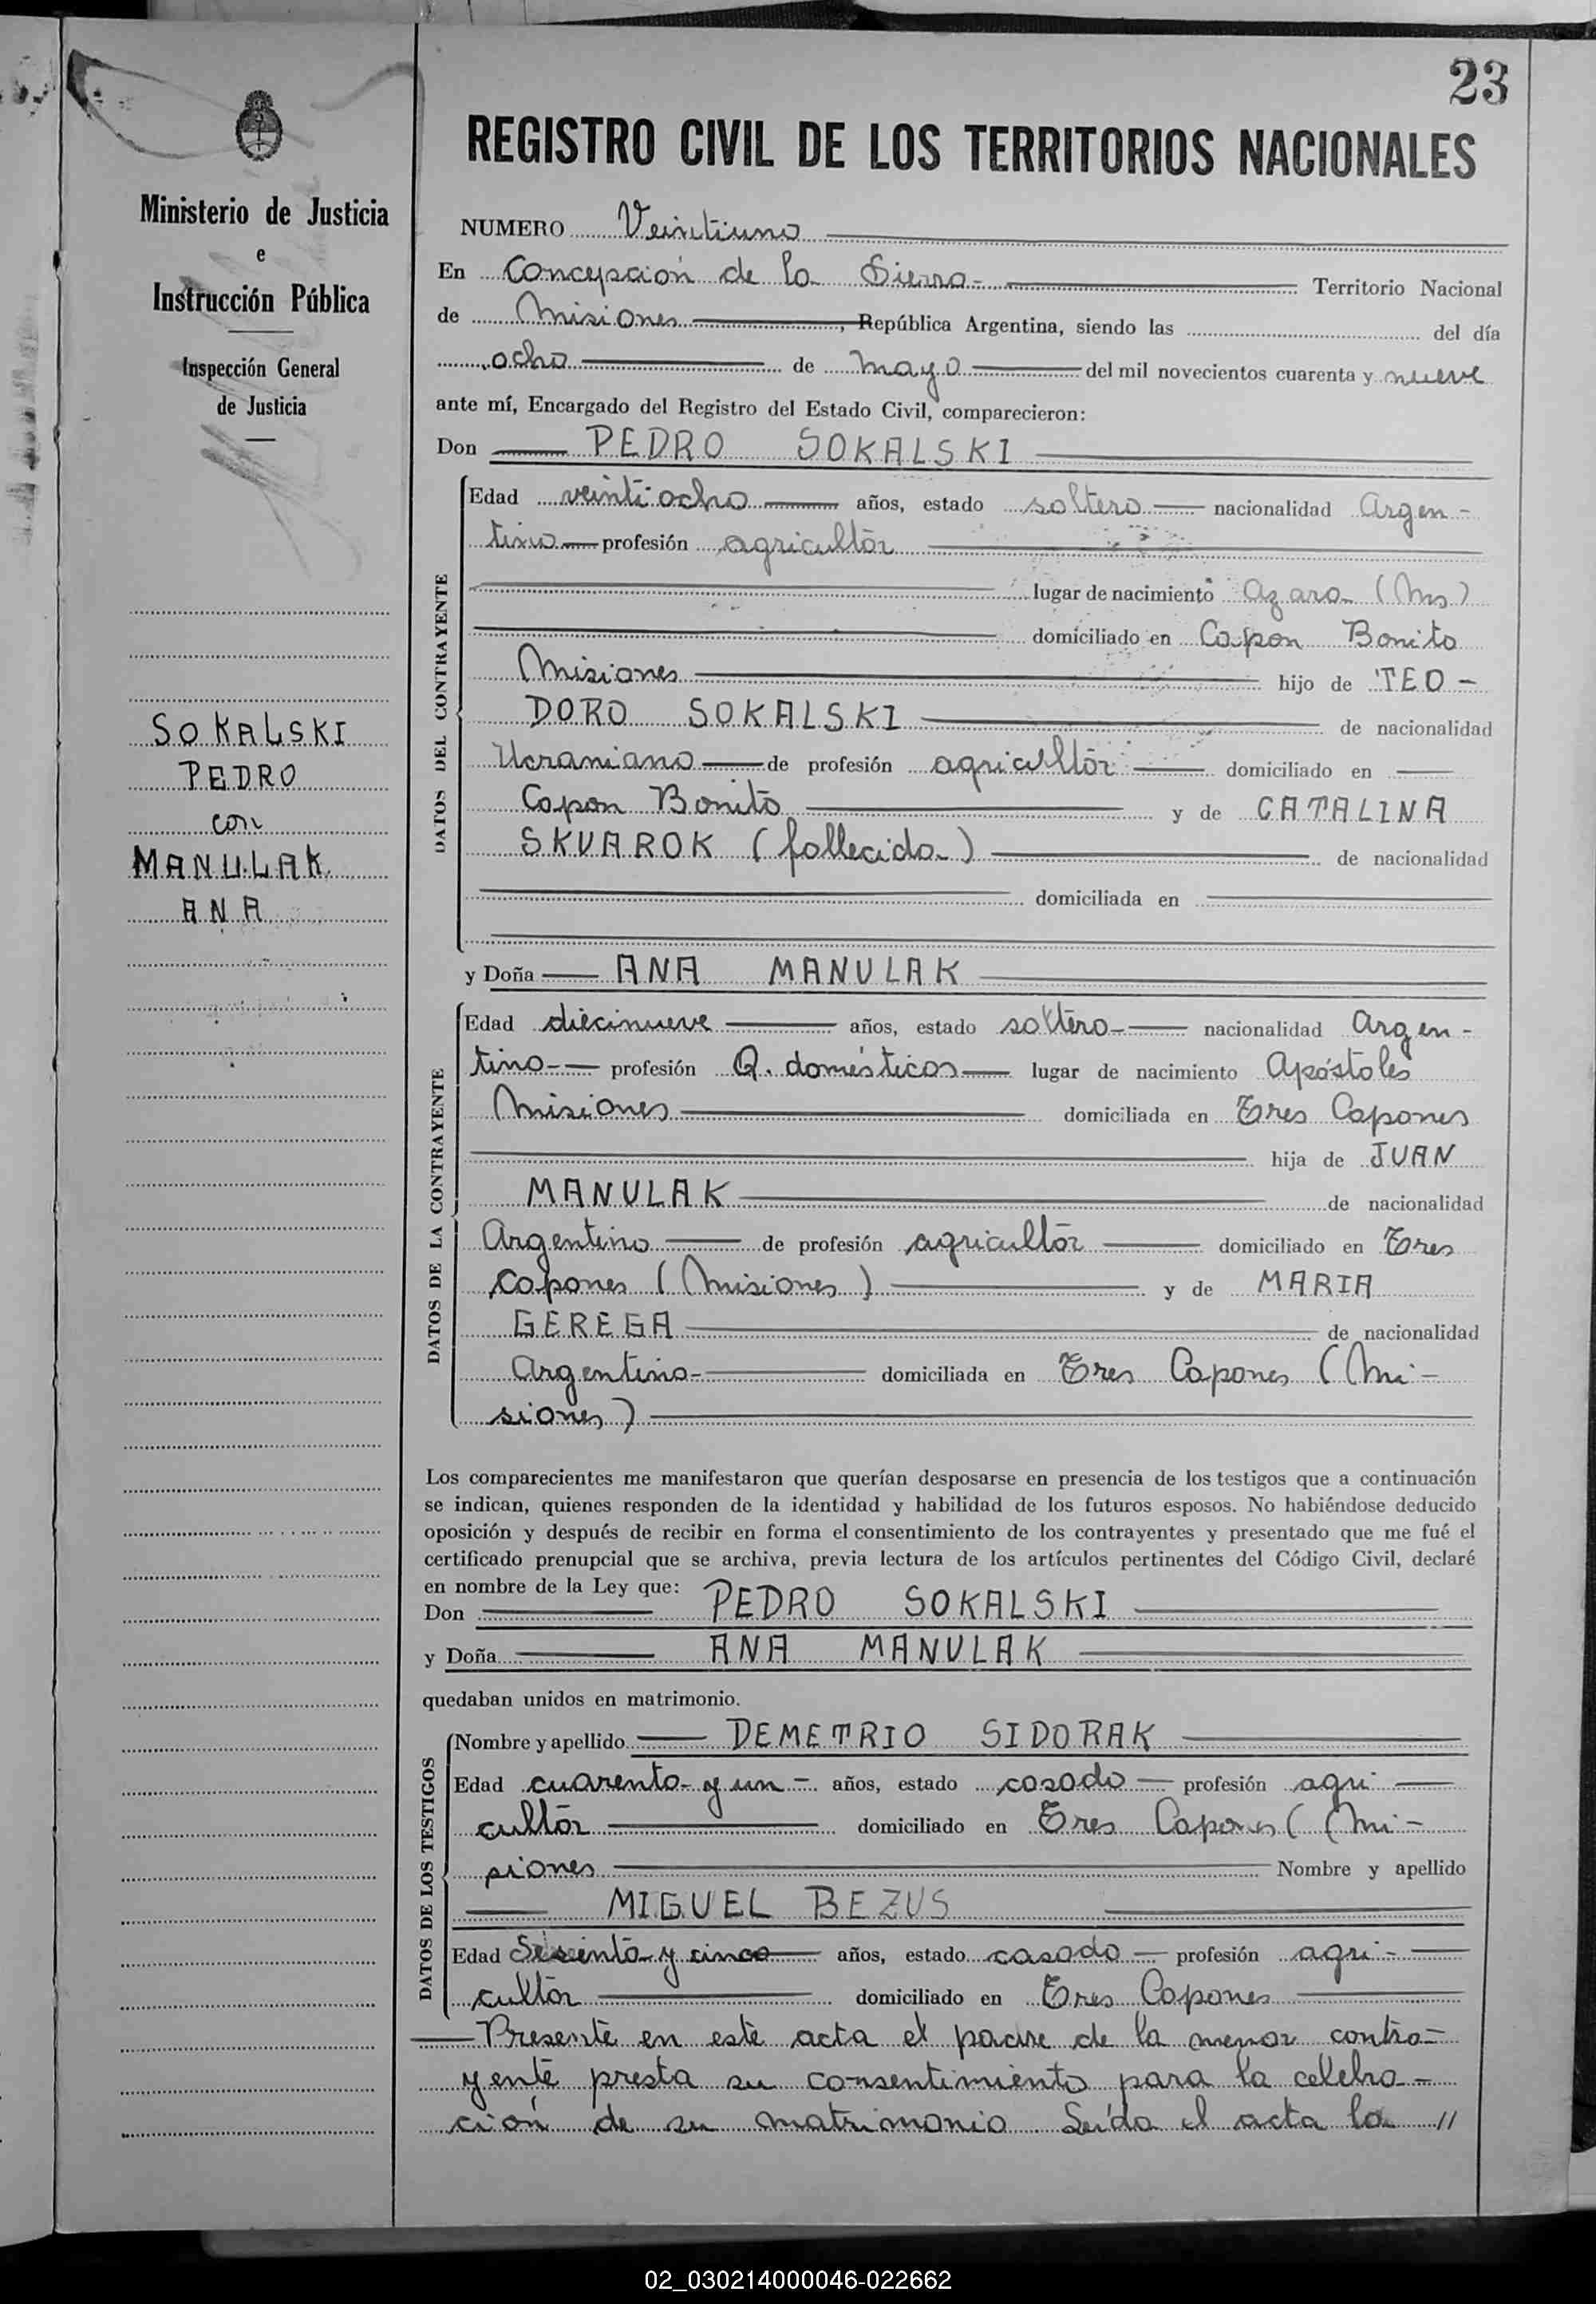 23
Ministerio de Justicia
e
Instrucción Pública
Inspección General
de Justicia
SOKALSKI
PEDRO
con
MANULAK
ANA
REGISTRO CIVIL DE LOS TERRITORIOS NACIONALES
NUMERO Veintiuno
En Concepción de la Sierra Territorio Nacional
de Misiones, República Argentina, siendo las del día
ocho de mayo del mil novecientos cuarenta y nueve
ante mí, Encargado del Registro del Estado Civil, comparecieron:
Don PEDRO SOKALSKI
DATOS DEL CONTRAYENTE
Edad veintiocho años, estado soltero nacionalidad Argen-
tino profesión agricultor
lugar de nacimiento Azara (Mns)
domiciliado en Capon Bonito
Misiones hijo de TEO-
DORO SOKALSKI de nacionalidad
Ucraniano de profesión agricultor domiciliado en
Capon Bonito y de CATALINA
SKVAROK (fallecida) de nacionalidad
domiciliada en
y Doña ANA MANULAK
DATOS DE LA CONTRAYENTE
Edad diecinueve años, estado soltera nacionalidad Argen-
tina profesión Q. domésticos lugar de nacimiento Apóstoles
Misiones domiciliada en Tres Capones
hija de JUAN
MANULAK de nacionalidad
Argentino de profesión agricultor domiciliado en Tres
capones (Misiones) y de MARIA
GEREGA de nacionalidad
Argentina domiciliada en Tres Capones (Mi-
siones)
Los comparecientes me manifestaron que querían desposarse en presencia de los testigos que a continuación
se indican, quienes responden de la identidad y habilidad de los futuros esposos. No habiéndose deducido
oposición y después de recibir en forma el consentimiento de los contrayentes y presentado que me fué el
certificado prenupcial que se archiva, previa lectura de los artículos pertinentes del Código Civil, declaré
en nombre de la Ley que:
Don PEDRO SOKALSKI
y Doña ANA MANULAK
quedaban unidos en matrimonio.
DATOS DE LOS TESTIGOS
Nombre y apellido DEMETRIO SIDORAK
Edad cuarenta y un años, estado casado profesión agri
cultor domiciliado en Tres Capones ( (Mi-
siones Nombre y apellido
MIGUEL BEZUS
Edad Sesenta y cinco años, estado casado profesión agri-
cultor domiciliado en Tres Capones
Presente en este acta el padre de la menor contra-
yente presta su consentimiento para la celebra-
ción de su matrimonio. Leída el acta la //
02_030214000046-022662